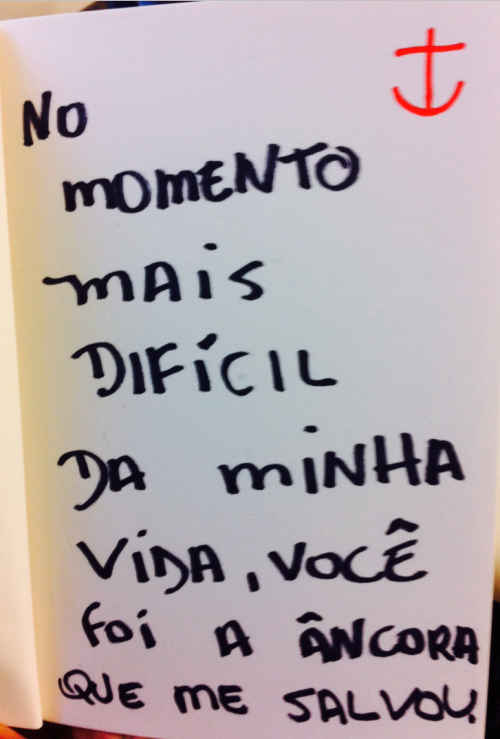 NO
MOMENTO
MAIS
DIFÍCIL
DA MINHA
VIDA, VOCÊ
FOI A ÂNCORA
QUE ME SALVOU.